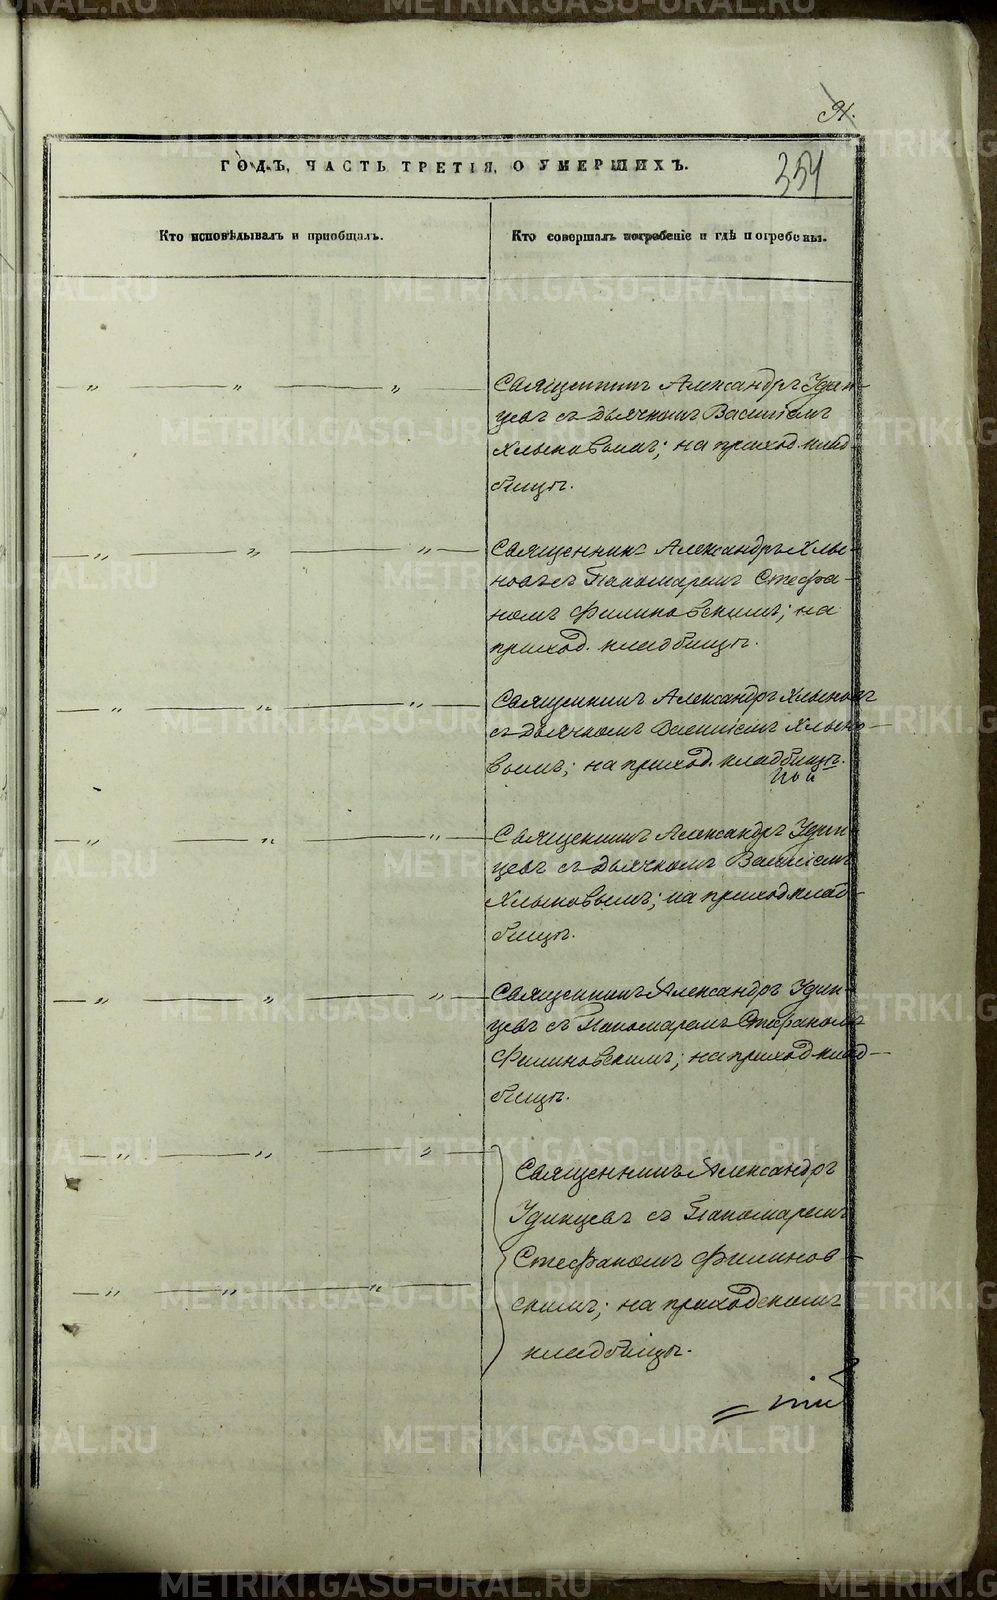 354
ГОДЪ, ЧАСТЬ ТРЕТІЯ, О УМЕРШИХЪ.
Кто исповѣдывалъ и пріобщалъ.
Кто совершалъ погребеніе и гдѣ погребены.
— „ — „ — „ —
Священникъ Александръ Удин-
цевъ съ дьячкомъ Василіемъ
Хлыновымъ; на приход. клад-
бищѣ.
— „ — „ — „ —
Священникъ Александръ Хлы-
новъ съ Пономаремъ Стефа-
номъ Филиновскимъ; на
приход. кладбищѣ.
— „ — „ — „ —
Священникъ Александръ Хлыновъ
съ дьячкомъ Василіемъ Хлыно-
вымъ; на приход. кладбищѣ.
— „ — „ — „ —
Священникъ Александръ Удин-
цевъ съ дьячкомъ Василіемъ
Хлыновымъ; на приход. клад-
бищѣ.
— „ — „ — „ —
Священникъ Александръ Удин-
цевъ съ Пономаремъ Стефаномъ
Филиновскимъ; на приход. клад-
бищѣ.
— „ — „ — „ —
Священникъ Александръ
Удинцевъ съ Пономаремъ
Стефаномъ Филинов-
скимъ; на приходскомъ
кладбищѣ.
— „ — „ — „ —
METRIKI.GASO-URAL.RU